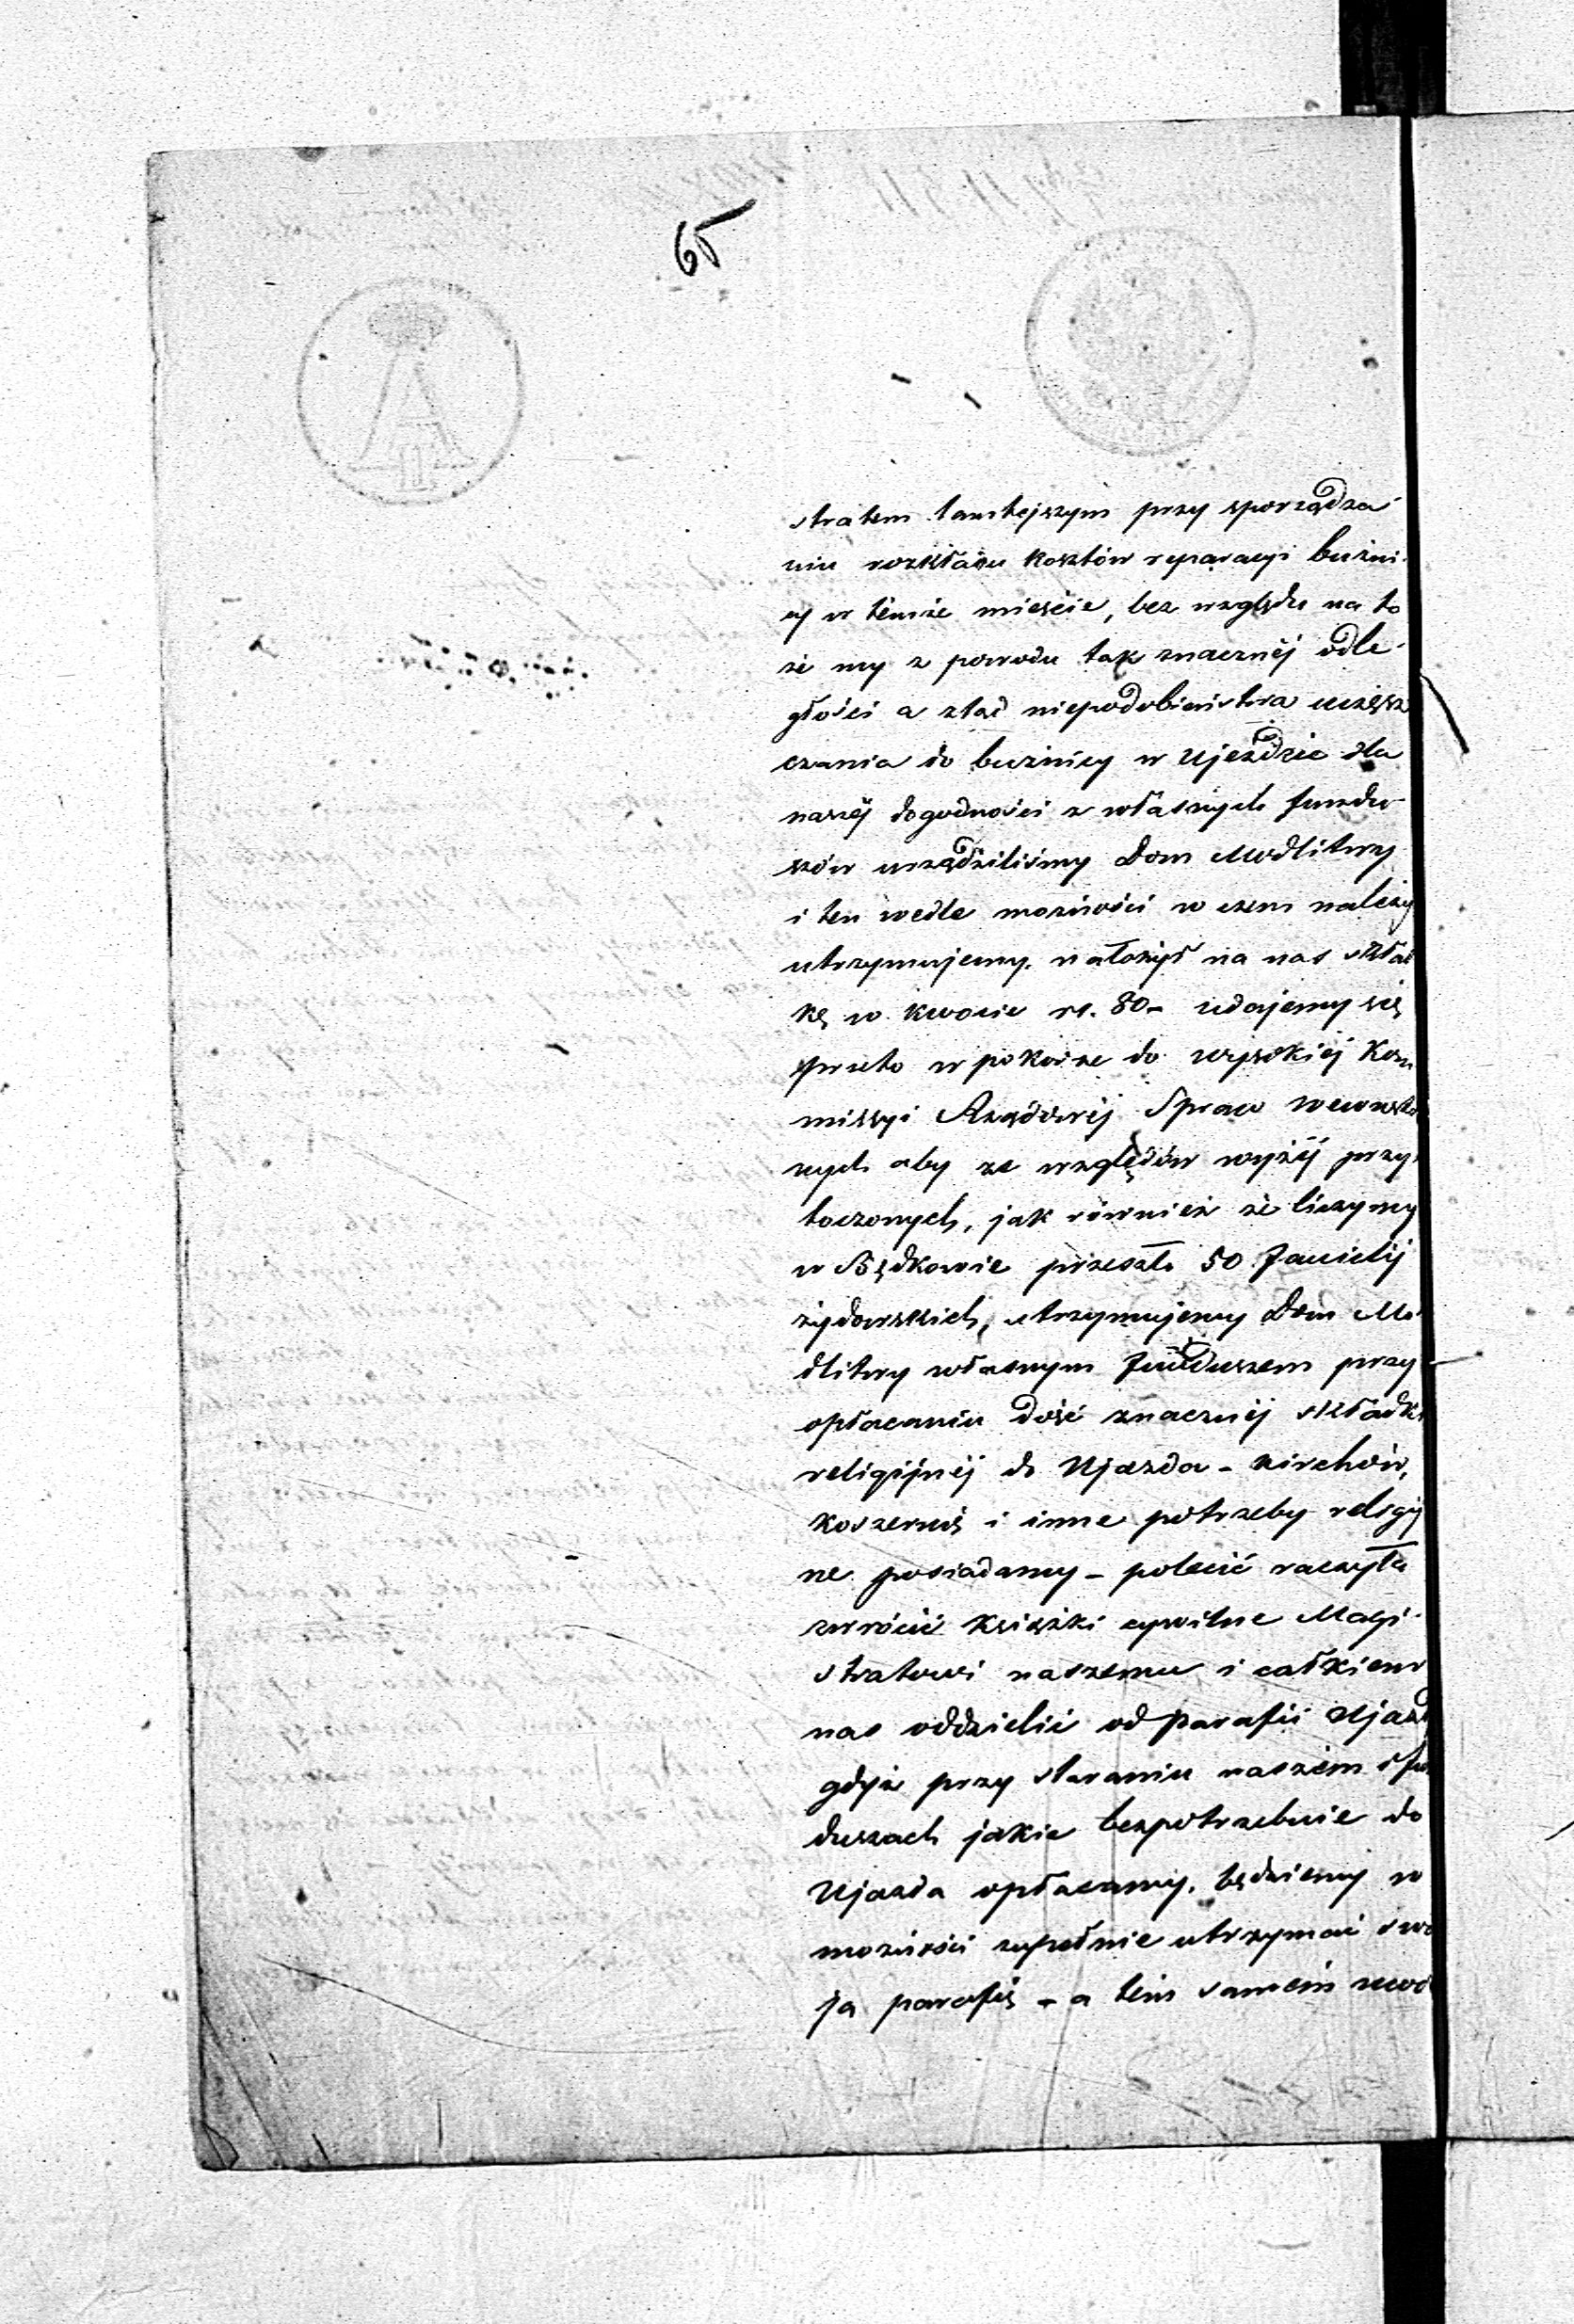 65
stratem tamtejszym przy sporządza-
niu rozkładu kosztów reparacyi bużni-
cy w témże mieście, bez względu na to
że my z powodu tak znacznéj odle-
głości a ztąd niepodobieństwa uczęsz
czania do bużnicy w Ujeździe dla
naszéj dogodności z własnych fundu-
szów urządziliśmy Dom Modlitwy
i ten wedle możności w czem należy
utrzymujemy. nałożył na nas skład
kę w kwocie rs. 80 – udajemy się
przeto w pokorze do wysokiéj Kom
missyi Rządowéj Spraw wewnętrz
nych aby ze względów wyżéj przy-
toczonych, jak również że liczymy
w Będkowie przeszło 50 familij
żydowskich, utrzymujemy Dom Mo
dlitwy własnym funduszem przy
opłacaniu dość znacznéj składki
religijnéj do Ujazda – kirchów,
koszernię i inne potrzeby religij
ne posiadamy – polecić raczyła
zwrócić książki cywilne Magi-
stratowi naszemu i całkiem
nas oddzielić od parafii Ujazd
gdyż przy staraniu naszém i fun
duszach jakie bezpotrzebnie do
Ujazda opłacamy, będziemy w
możności zupełnie utrzymać swo
ja parafię – a tém samém